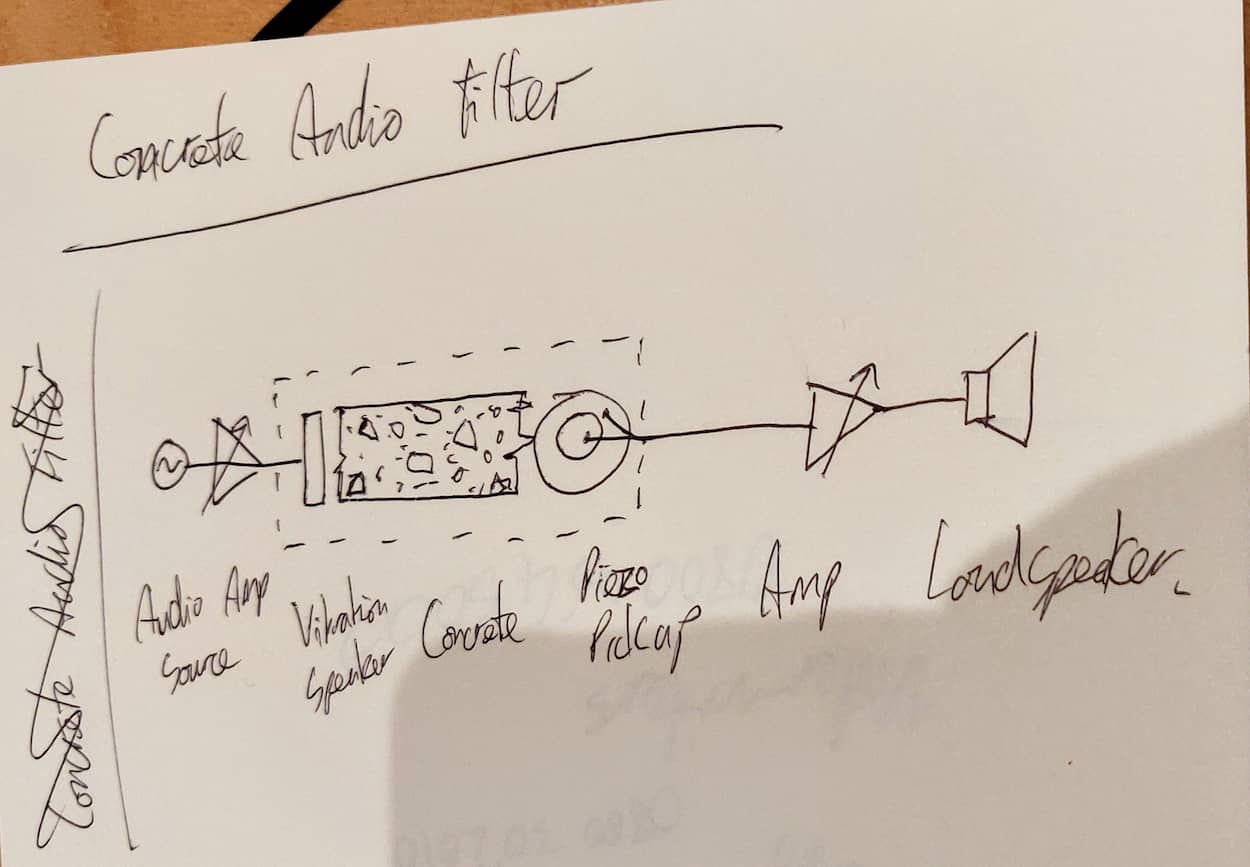 Concrete Audio Filter
Concrete Audio Filter
Audio Amp
Source
Vibration
Speaker
Concrete
Piezo
Pickup
Amp
Loudspeaker.